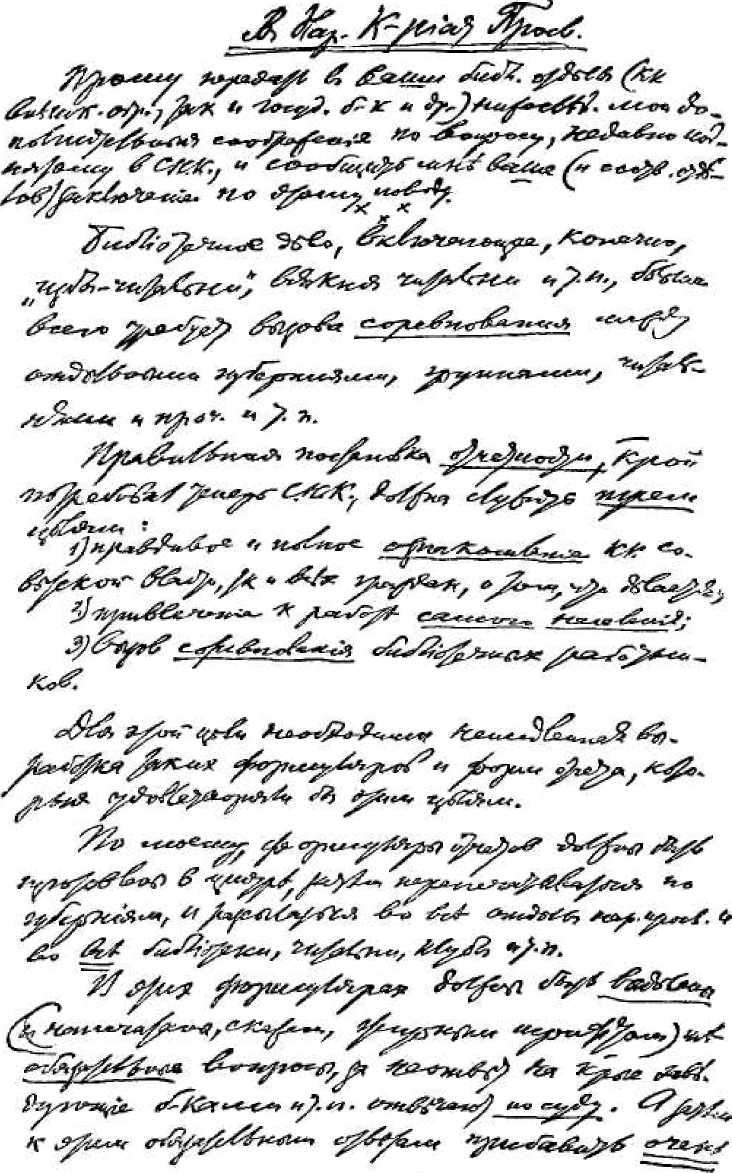 В Нар. К-ріат Просв.
Прошу передать в ваши библ. отделы (кк
внѣшк. обр., так и госуд. б-к и др.) нижеслѣд. мои до-
полнительныя соображенія по вопросу, недавно под-
нятому в СНК., и сообщить мнѣ ваше (и соотв. отдѣ-
лов) заключеніе по этому поводу.
Библіотечное дѣло, включающее, конечно,
„избы-читальни“, всякия читальни и т. п., больше
всего требует вызова соревнования между
отдѣльными губерниями, группами, читаль-
нями и проч. и т. п.
Правильная постановка отчетности, крой
потребовал теперь СНК., должна служить трем
цѣлям:
1) правдивое и полное ознакомленіе кк со-
вѣтской власти, тк и всѣх граждан, о том, что дѣлается;
2) привлеченіе к работѣ самого населенія;
3) вызов соревнованія библіотечных работни-
ков.
Для этой цѣли необходима немедленная вы-
работка таких формуляров и форм отчета, кото-
рые удовлетворяли бы этим цѣлям.
По моему, формуляры отчетов должны быть
изготовлены в центрѣ, затѣм перепечатываться по
губерніям, и рассылаться во всѣ отдѣлы нар. просв. и
во всѣ библіотеки, читальни, клубы и т. п.
В этих формулярах должны быть выдѣлены
(и напечатаны, скажем, жирным шрифтом) тѣ
обязательные вопросы, за неотвѣт на крые завѣ-
дующіе б-ками и т. п. отвѣчают по суду. А затѣм
к этим обязательным отвѣтам прибавить очень